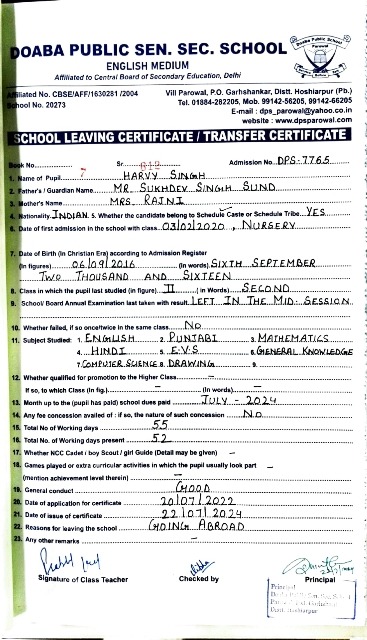 DOABA PUBLIC SEN. SEC. SCHOOL
ENGLISH MEDIUM
Affiliated to Central Board of Secondary Education, Delhi
Affiliated No. CBSE/AFF/1630281 /2004
School No. 20273
Vill Parowal, P.O. Garhshankar, Distt. Hoshiarpur (Pb.)
Tel. 01884-282205, Mob. 99142-56205, 99142-66205
E-mail : dps_parowal@yahoo.co.in
website : www.dpsparowal.com
SCHOOL LEAVING CERTIFICATE / TRANSFER CERTIFICATE
Book No. 7 Sr. 612 Admission No. DPS-7765
1. Name of Pupil HARVY SINGH
2. Father's / Guardian Name MR. SUKHDEV SINGH SUND
3. Mother's Name MRS RAJNI
4. Nationality INDIAN 5. Whether the candidate belong to Schedule Caste or Schedule Tribe YES
6. Date of first admission in the school with class 03/02/2020, NURSERY
7. Date of Birth (In Christian Era) according to Admission Register
(In figures) 06/09/2016 (In words) SIXTH SEPTEMBER
TWO THOUSAND AND SIXTEEN
8. Class in which the pupil studied (in figure) II (In Words) SECOND
9. School/ Board Annual Examination last taken with result LEFT IN THE MID-SESSION
10. Whether failed, if so once/twice in the same class NO
11. Subject Studied: 1. ENGLISH 2. PUNJABI 3. MATHEMATICS
4. HINDI 5. E.V.S 6. GENERAL KNOWLEDGE
7. COMPUTER SCIENCE 8. DRAWING 9.
12. Whether qualified for promotion to the Higher Class –
If so, to which Class (In fig.) – (In words) –
13. Month up to the (pupil has paid) school dues paid JULY - 2024
14. Any fee concession availed of : if so, the nature of such concession NO
15. Total No of Working days 55
16. Total No. of Working days present 52
17. Whether NCC Cadet / boy Scout / girl Guide (Detail may be given) –
18. Games played or extra curricular activities in which the pupil usually look part –
(mention achievement level therein) –
19. General conduct GOOD
20. Date of application for certificate 20/07/2022
21. Date of issue of certificate 22/07/2024
22. Reasons for leaving the school GOING ABROAD
23. Any other remarks –
Signature of Class Teacher Checked by Principal
Principal